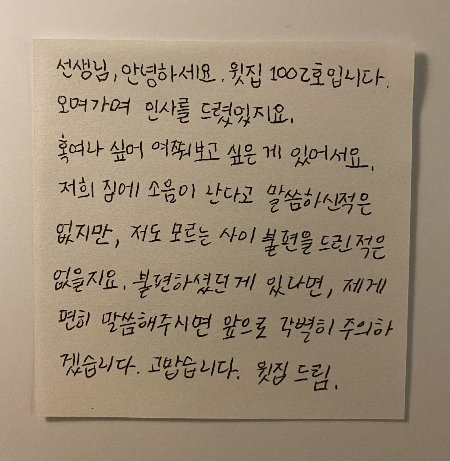 선생님, 안녕하세요. 윗집 1002호입니다.
오며가며 인사를 드렸었지요.
혹여나 싶어 여쭤보고 싶은 게 있어서요.
저희 집에 소음이 난다고 말씀하신적은
없지만, 저도 모르는 사이 불편을 드린적은
없을지요. 불편하셨던 게 있다면, 제게
편히 말씀해주시면 앞으로 각별히 주의하
겠습니다. 고맙습니다. 윗집 드림.